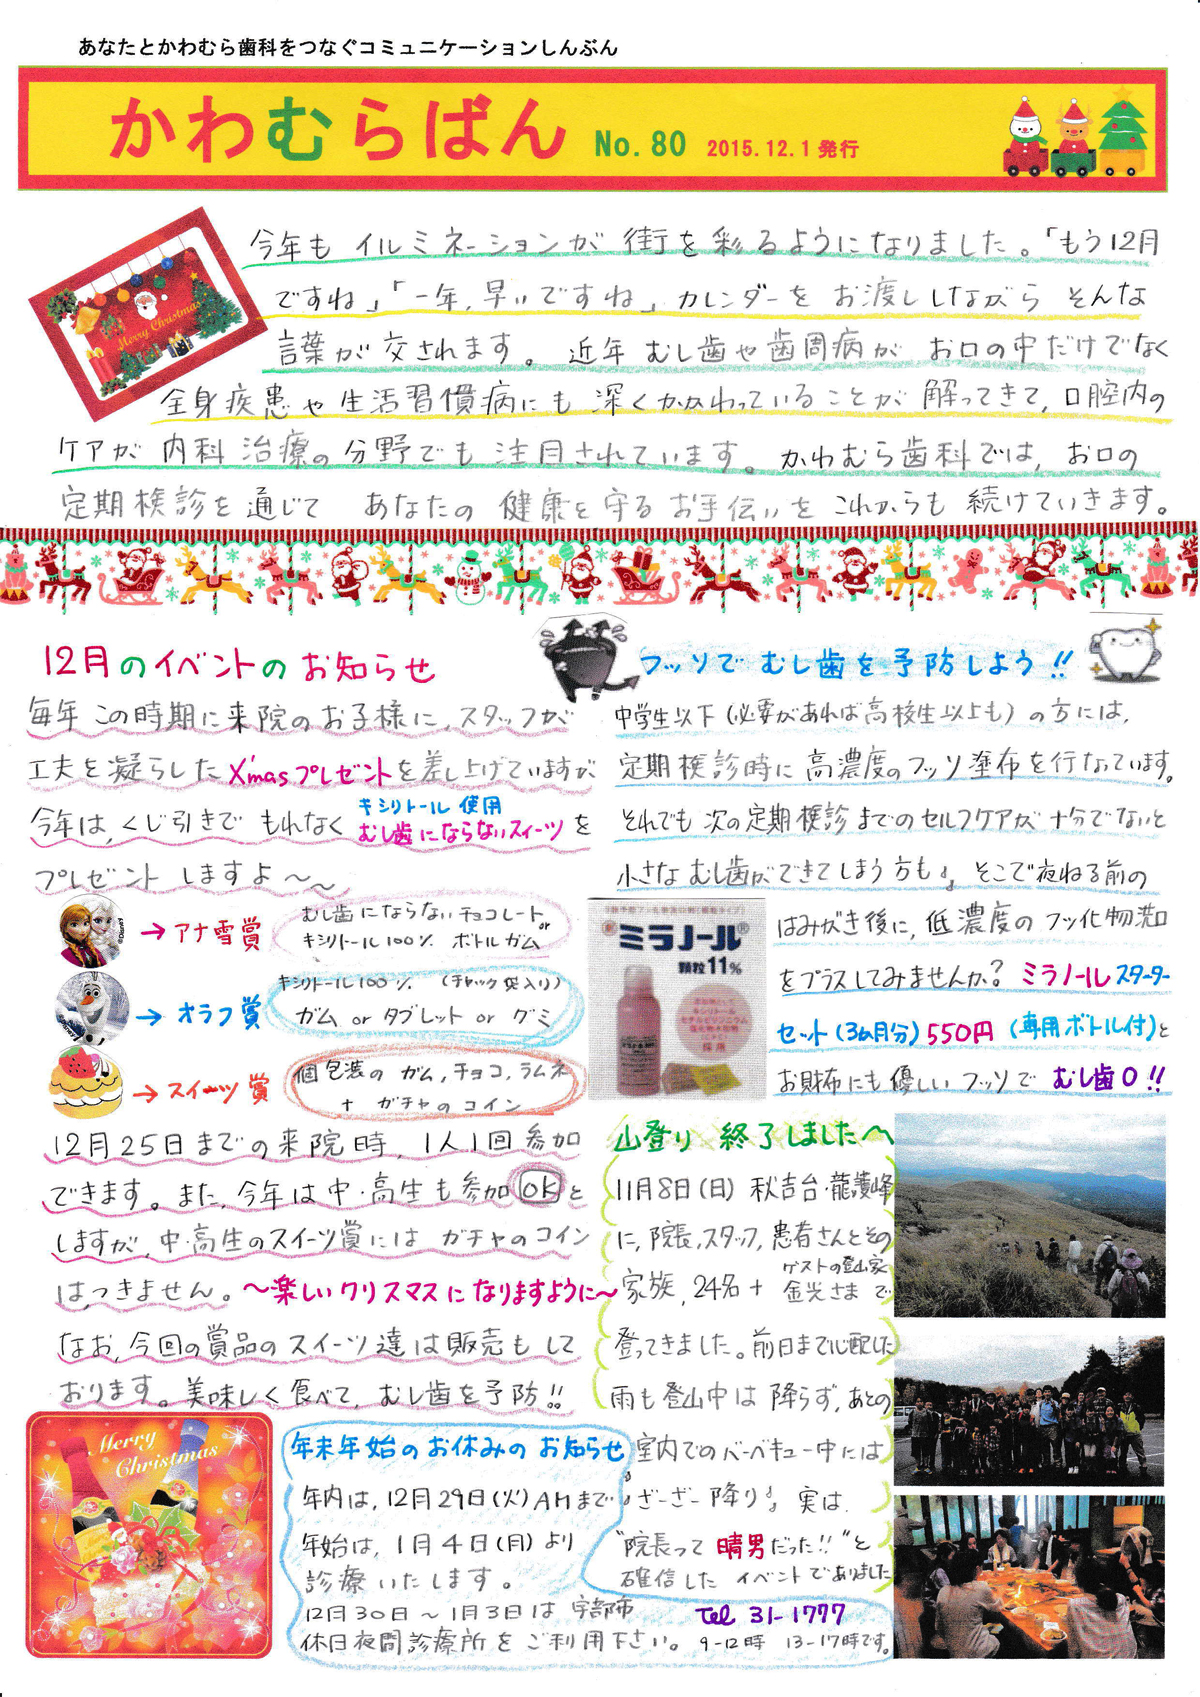 あなたとかわむら歯科をつなぐコミュニケーションしんぶん
かわむらばん No. 80 2015.12.1発行
Merry Christmas
今年も イルミネーションが 街を彩るようになりました。「もう12月
ですね」「一年,早いですね」カレンダーを お渡ししながら そんな
言葉が交されます。近年 むし歯や歯周病が お口の中だけでなく
全身疾患や生活習慣病にも 深くかかわっていることが 解ってきて,口腔内の
ケアが 内科治療の分野でも 注目されています。かわむら歯科では,お口の
定期検診を通じて あなたの 健康を守るお手伝いを これからも 続けていきます。
12月のイベントのお知らせ
毎年 この時期に来院のお子様に,スタッフが
工夫を凝らしたX'masプレゼントを差し上げていますが
今年は,くじ引きで もれなく キシリトール使用
むし歯にならないスイーツを
プレゼント しますよ～～
→ アナ雪賞
むし歯にならないチョコレート or
キシリトール100% ボトルガム
→ オラフ賞
キシリトール100% (チャック袋入り)
ガム or タブレット or グミ
→ スイーツ賞
個包装の ガム,チョコ,ラムネ
+ ガチャの コイン
12月25日までの来院時,1人1回参加
できます。また,今年は中・高生も参加OKと
しますが,中・高生のスイーツ賞には ガチャのコイン
はつきません。～楽しいクリスマスになりますように～
なお,今回の賞品のスイーツ達は販売もして
おります。美味しく食べて,むし歯を予防!!
フッソで むし歯を予防しよう!!
中学生以下(必要があれば高校生以上も)の方には,
定期検診時に 高濃度のフッソ塗布を行なっています。
それでも 次の定期検診までのセルフケアが 十分でないと
小さなむし歯ができてしまう方も。そこで夜ねる前の
はみがき後に,低濃度の フッ化物洗口
をプラスしてみませんか? ミラノールスターター
セット(3ヵ月分)550円 (専用ボトル付)と
お財布にも優しい フッソで むし歯0!!
ミラノール®
顆粒11%
採用
山登り 終了しました～
11月8日(日) 秋吉台・龍護峰
に,院長,スタッフ,患者さんとその
家族,24名+ ゲストの登山家
金光さま で
登ってきました。前日まで心配した
雨も登山中は 降らず,あとの
室内でのバーベキュー中には
ざーざー降り。実は,
"院長って晴男だった!!"と
確信した イベントでありました
Merry
Christmas
年末年始のお休みのお知らせ
年内は,12月29日(火)AMまで
年始は,1月4日(月)より
診療いたします。
12月30日～1月3日は 宇部市
休日夜間診療所をご利用下さい。
Tel 31-1777
9-12時 13-17時です。